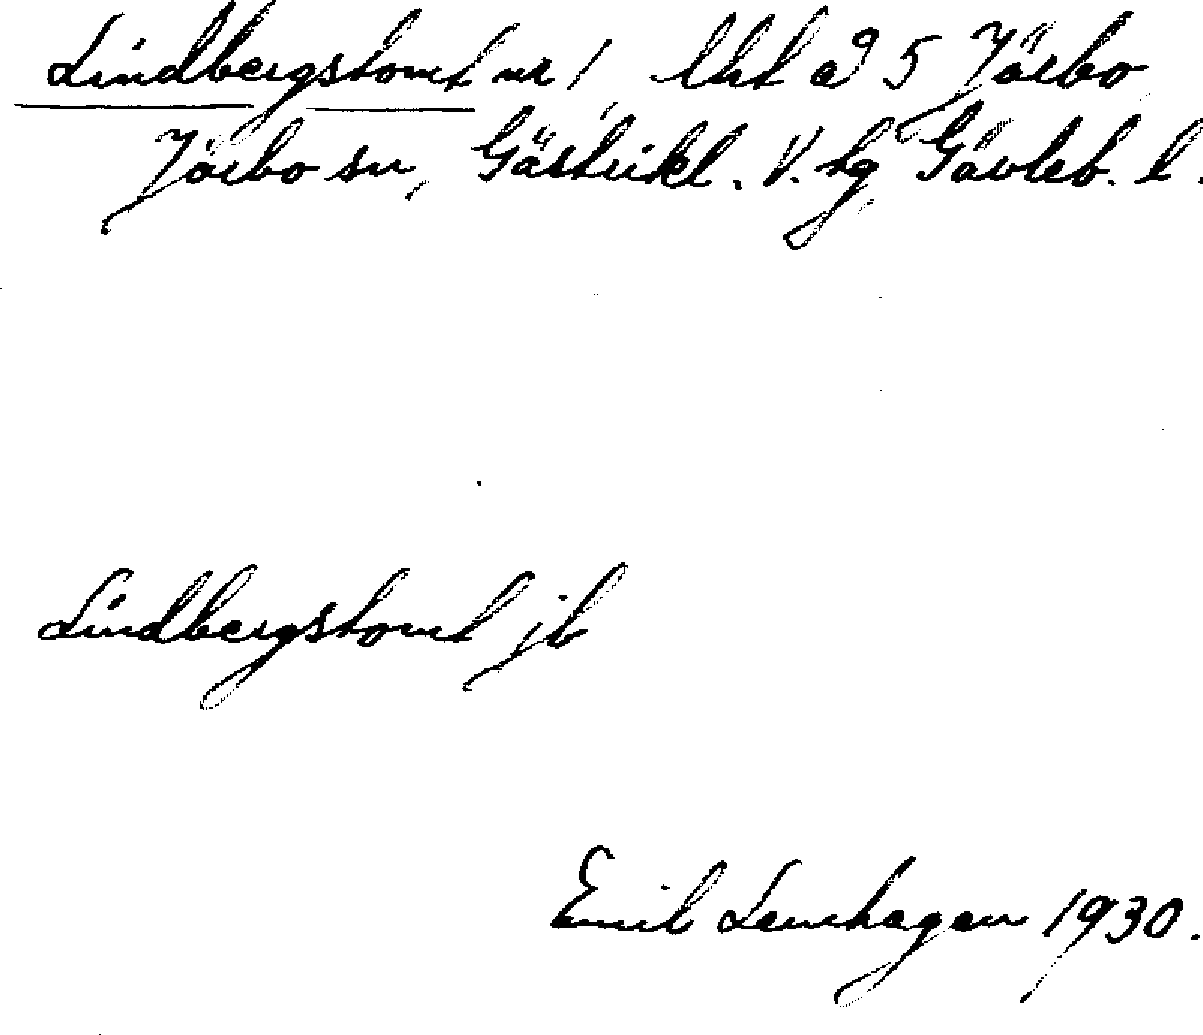 Lindbergstomt nr 1, lht a 5 Järbo
Järbo sn, Gästrikl. V. hg Gävleb. l.
Lindbergstomt jb
Emil Lenhagen 1930.